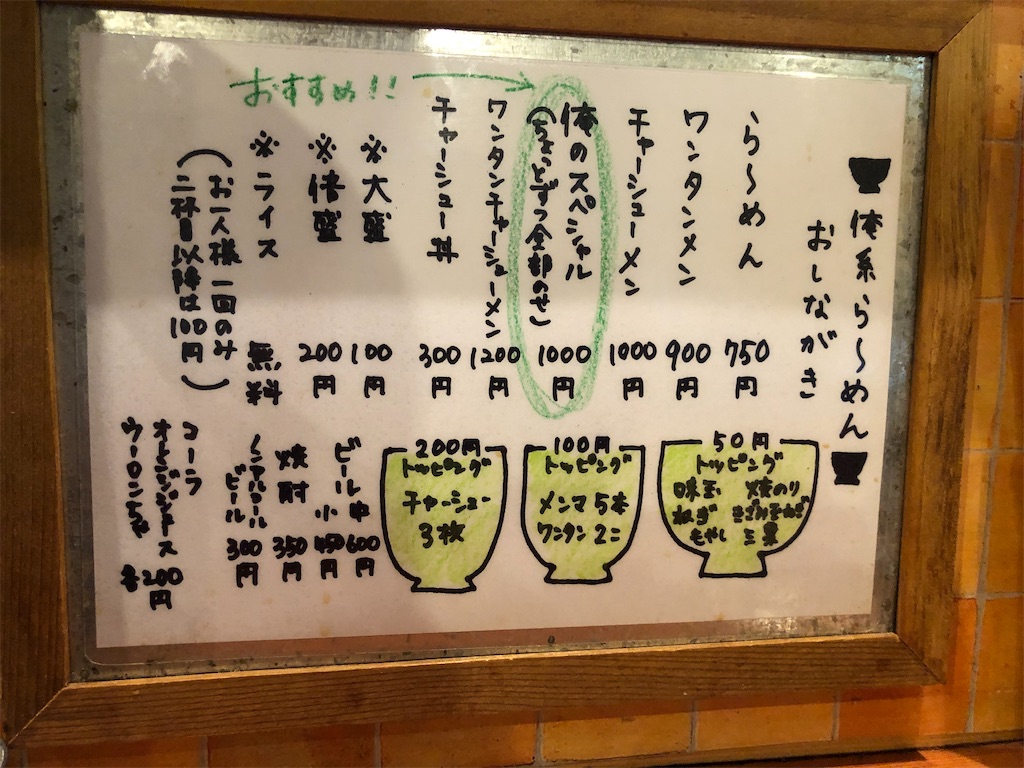 俺系ら〜めん
おしながき
ら〜めん 750円
ワンタンメン 900円
チャーシューメン 1000円
おすすめ!!
俺のスペシャル
(ちょっとずつ全部のせ) 1000円
ワンタンチャーシューメン 1200円
チャーシュー丼 300円
※大盛 100円
※倍盛 200円
※ライス 無料
(お一人様一回のみ
二杯目以降は100円)
50円
トッピング
味玉 焼のり
ねぎ きざみ玉ねぎ
もやし 三葉
100円
トッピング
メンマ5本
ワンタン2こ
200円
トッピング
チャーシュー
3枚
ビール中 600円
小 450円
焼酎 350円
ノンアルコール
ビール 300円
コーラ
オレンジジュース
ウーロン茶
各200円